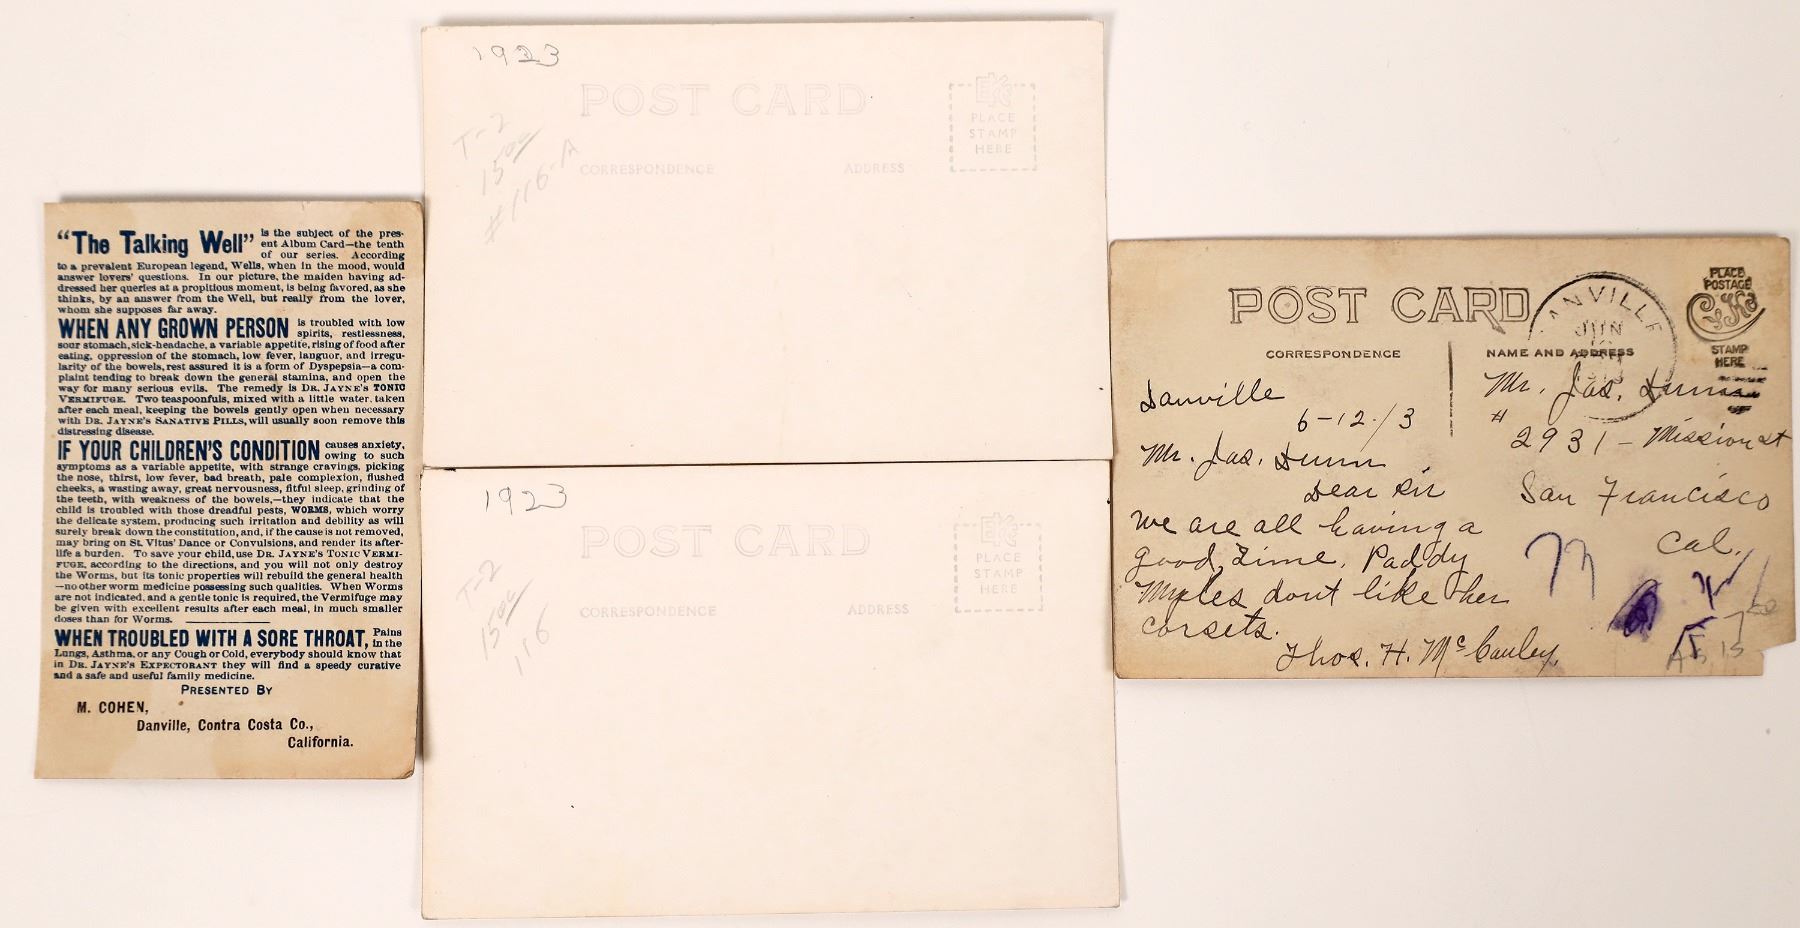 “The Talking Well” is the subject of the pres-
ent Album Card—the tenth
of our series. According
to a prevalent European legend, Wells, when in the mood, would
answer lovers' questions. In our picture, the maiden having ad-
dressed her queries at a propitious moment, is being favored, as she
thinks, by an answer from the Well, but really from the lover,
whom she supposes far away.
WHEN ANY GROWN PERSON is troubled with low
spirits, restlessness,
sour stomach, sick-headache, a variable appetite, rising of food after
eating, oppression of the stomach, low fever, languor, and irregu-
larity of the bowels, rest assured it is a form of Dyspepsia—a com-
plaint tending to break down the general stamina, and open the
way for many serious evils. The remedy is DR. JAYNE'S TONIC
VERMIFUGE. Two teaspoonfuls, mixed with a little water, taken
after each meal, keeping the bowels gently open when necessary
with DR. JAYNE'S SANATIVE PILLS, will usually soon remove this
distressing disease.
IF YOUR CHILDREN'S CONDITION causes anxiety,
owing to such
symptoms as a variable appetite, with strange cravings, picking
the nose, thirst, low fever, bad breath, pale complexion, flushed
cheeks, a wasting away, great nervousness, fitful sleep, grinding of
the teeth, with weakness of the bowels,—they indicate that the
child is troubled with those dreadful pests, WORMS, which worry
the delicate system, producing such irritation and debility as will
surely break down the constitution, and, if the cause is not removed,
may bring on St. Vitus' Dance or Convulsions, and render its after-
life a burden. To save your child, use DR. JAYNE'S TONIC VERMI-
FUGE, according to the directions, and you will not only destroy
the Worms, but its tonic properties will rebuild the general health
—no other worm medicine possessing such qualities. When Worms
are not indicated, and a gentle tonic is required, the Vermifuge may
be given with excellent results after each meal, in much smaller
doses than for Worms.
WHEN TROUBLED WITH A SORE THROAT, Pains
in the
Lungs, Asthma, or any Cough or Cold, everybody should know that
in DR. JAYNE'S EXPECTORANT they will find a speedy curative
and a safe and useful family medicine.
PRESENTED BY
M. COHEN,
Danville, Contra Costa Co.,
California.
1923
POST CARD
EK
PLACE
STAMP
HERE
T-2
15.00
#116-A
CORRESPONDENCE
ADDRESS
1923
POST CARD
EK
PLACE
STAMP
HERE
T-2
15.00
116
CORRESPONDENCE
ADDRESS
POST CARD
ANVILLE
JUN
PLACE
POSTAGE
CYKO
STAMP
HERE
CORRESPONDENCE
NAME AND ADDRESS
Danville
6-12-13
Mr. Jas. Dunn
Dear Sir
We are all having a
good time. Paddy
Myles dont like her
corsets.
Thos. H. McCauley.
Mr. Jas. Dunn
# 2931 - Mission st
San Francisco
Cal.